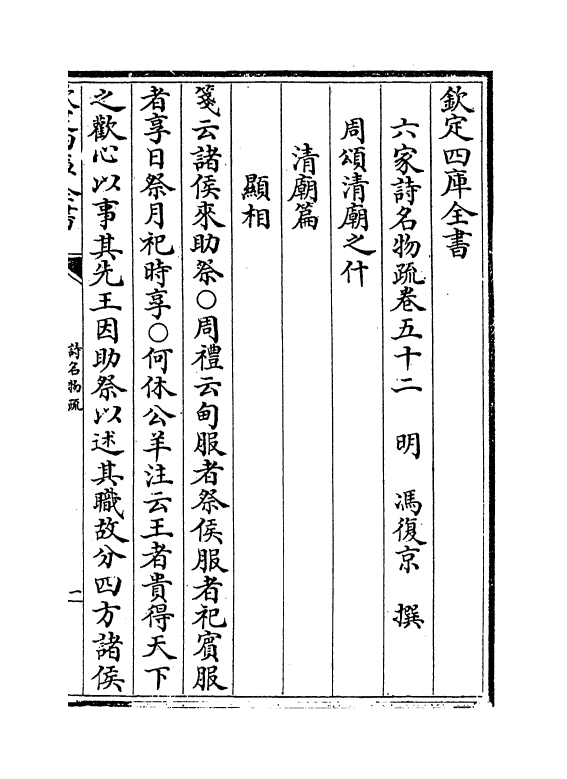 欽定四庫全書
六家詩名物疏卷五十二 明 馮復京 撰
周頌清廟之什
清廟篇
顯相
箋云諸侯來助祭○周禮云甸服者祭侯服者祀賓服
者享日祭月祀時享○何休公羊注云王者貴得天下
之歡心以事其先王因助祭以述其職故分四方諸侯
詩名物疏